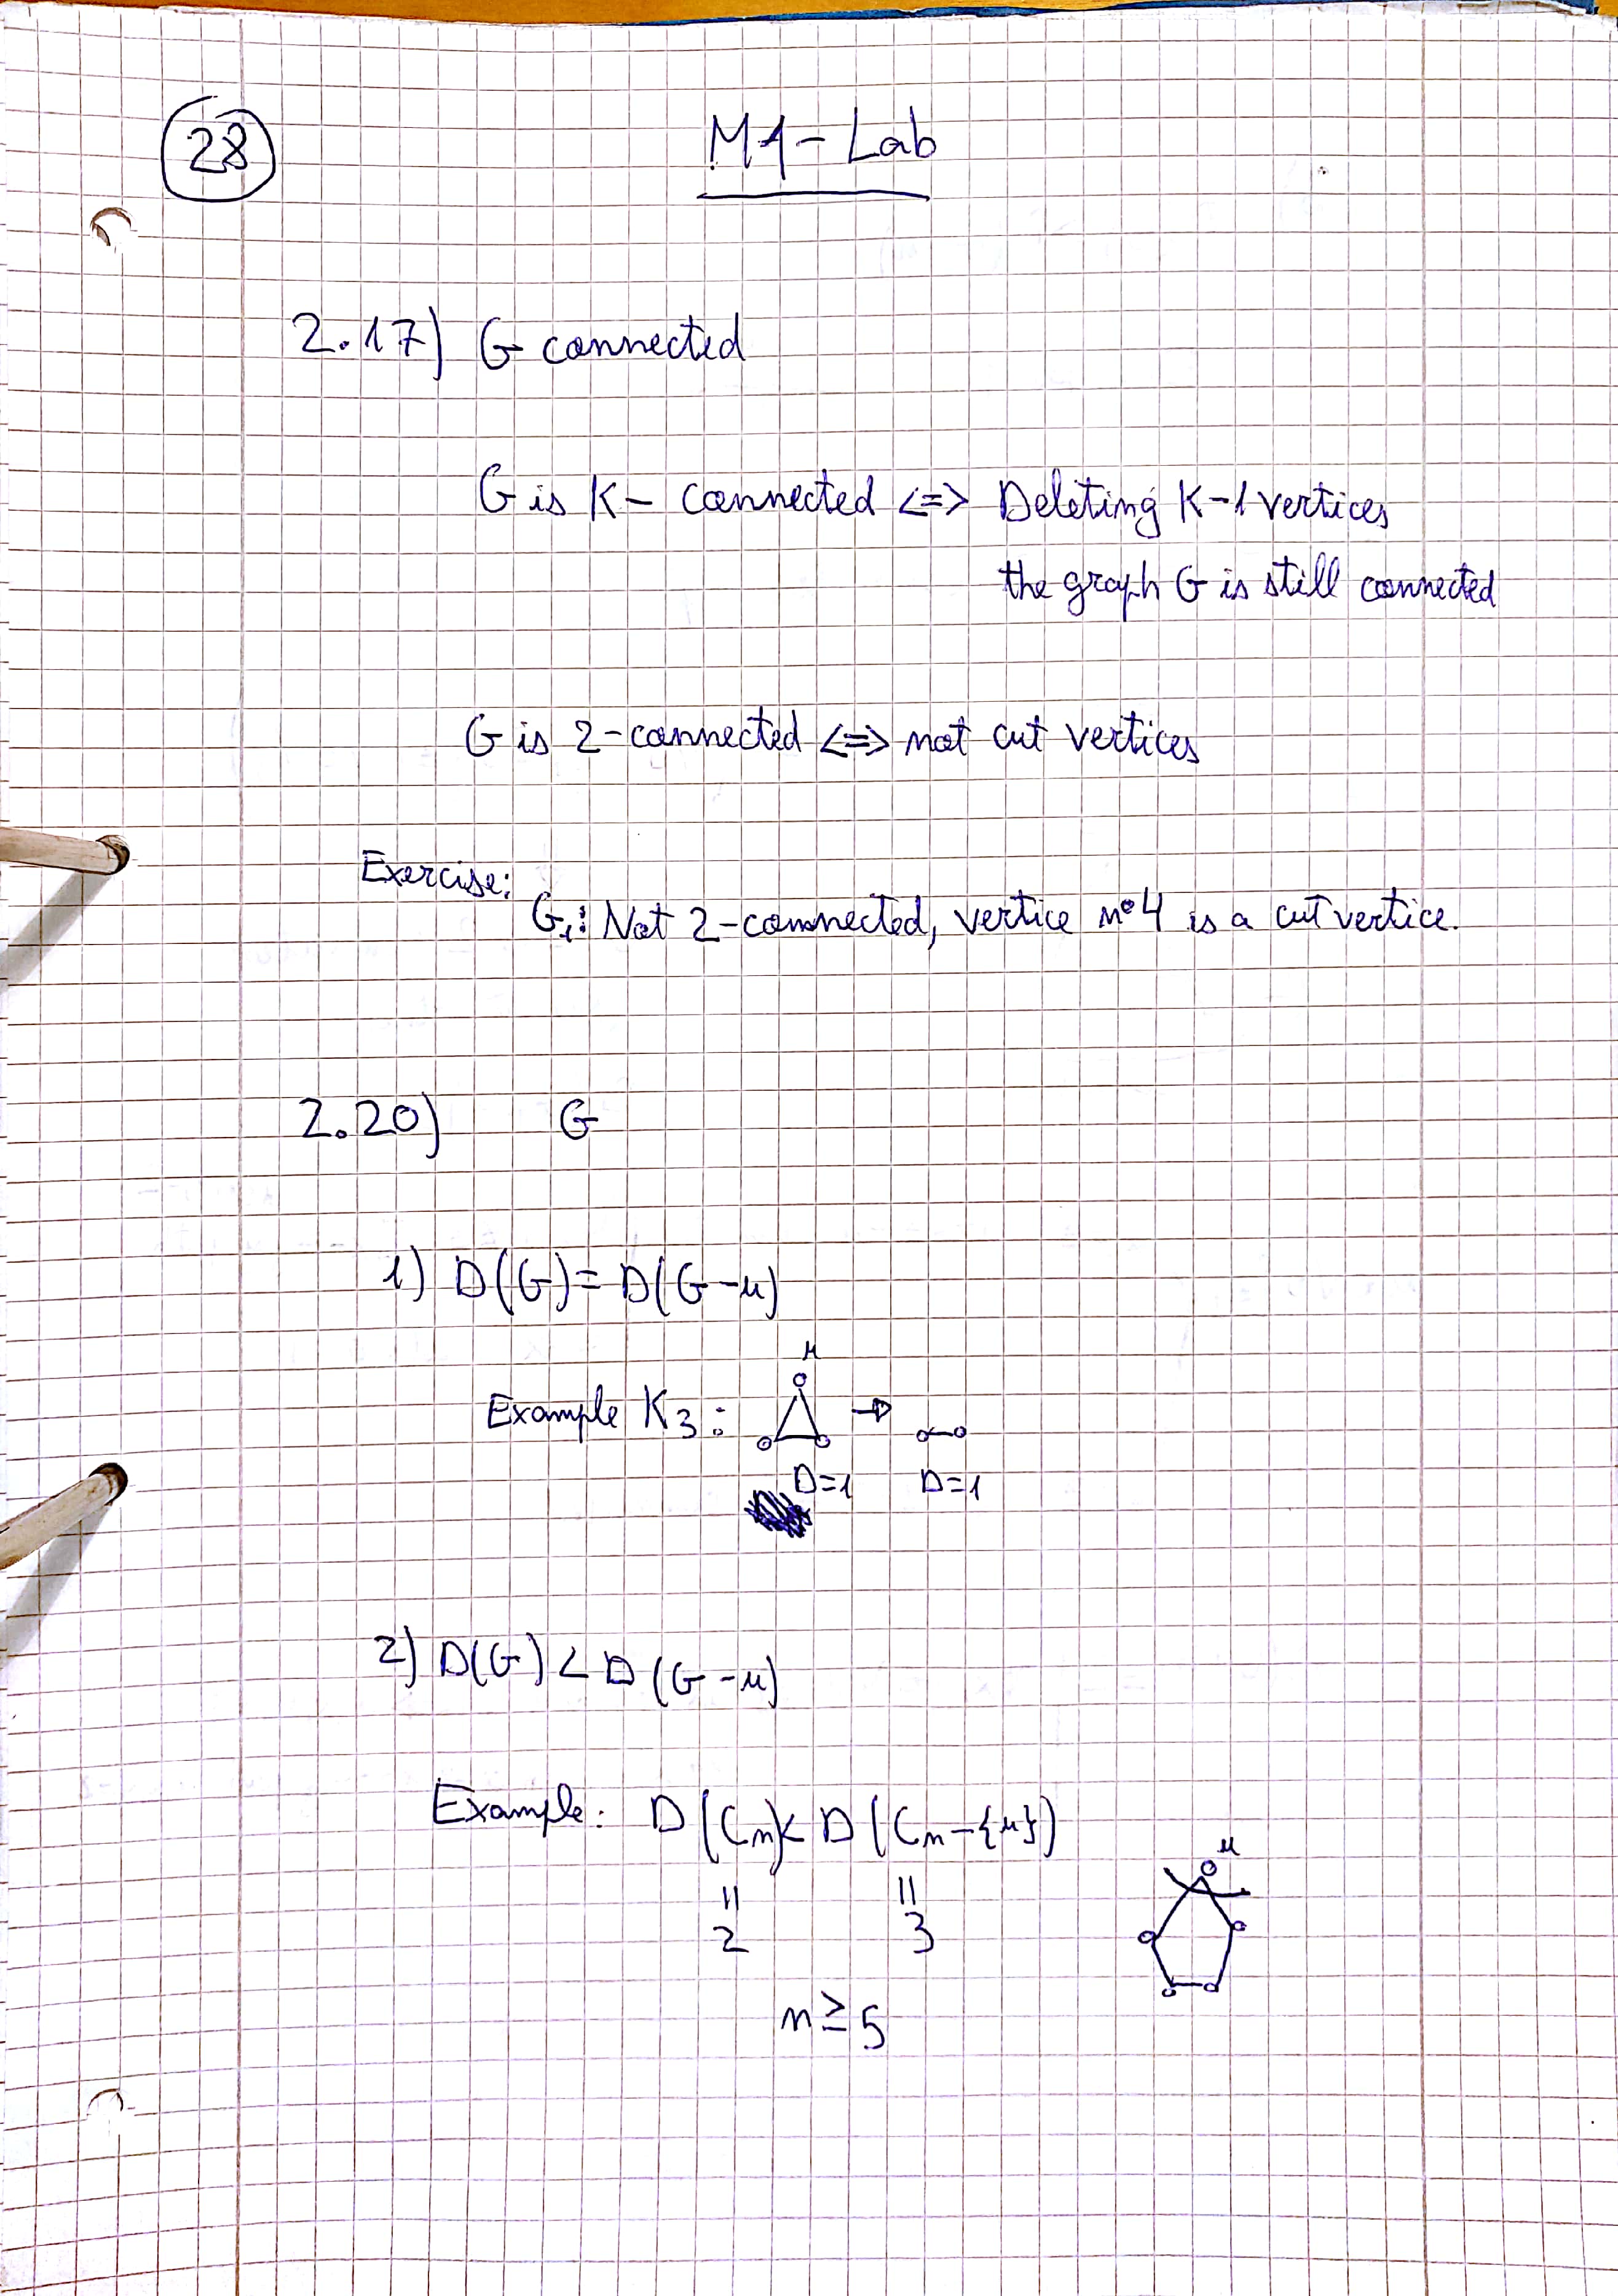 28
M1-Lab
2.17) G connected
G is K-connected <=> Deleting K-1 vertices
the graph G is still connected
G is 2-connected <=> not cut vertices
Exercise:
G₁: Not 2-connected, vertice nº4 is a cut vertice.
2.20) G
1) D(G)=D(G-u)
u
Example K3:
D=1 D=1
2) D(G)<D(G-u)
Example: D(Cn)<D(Cn-{u})
u
|| ||
2 3
n≥5